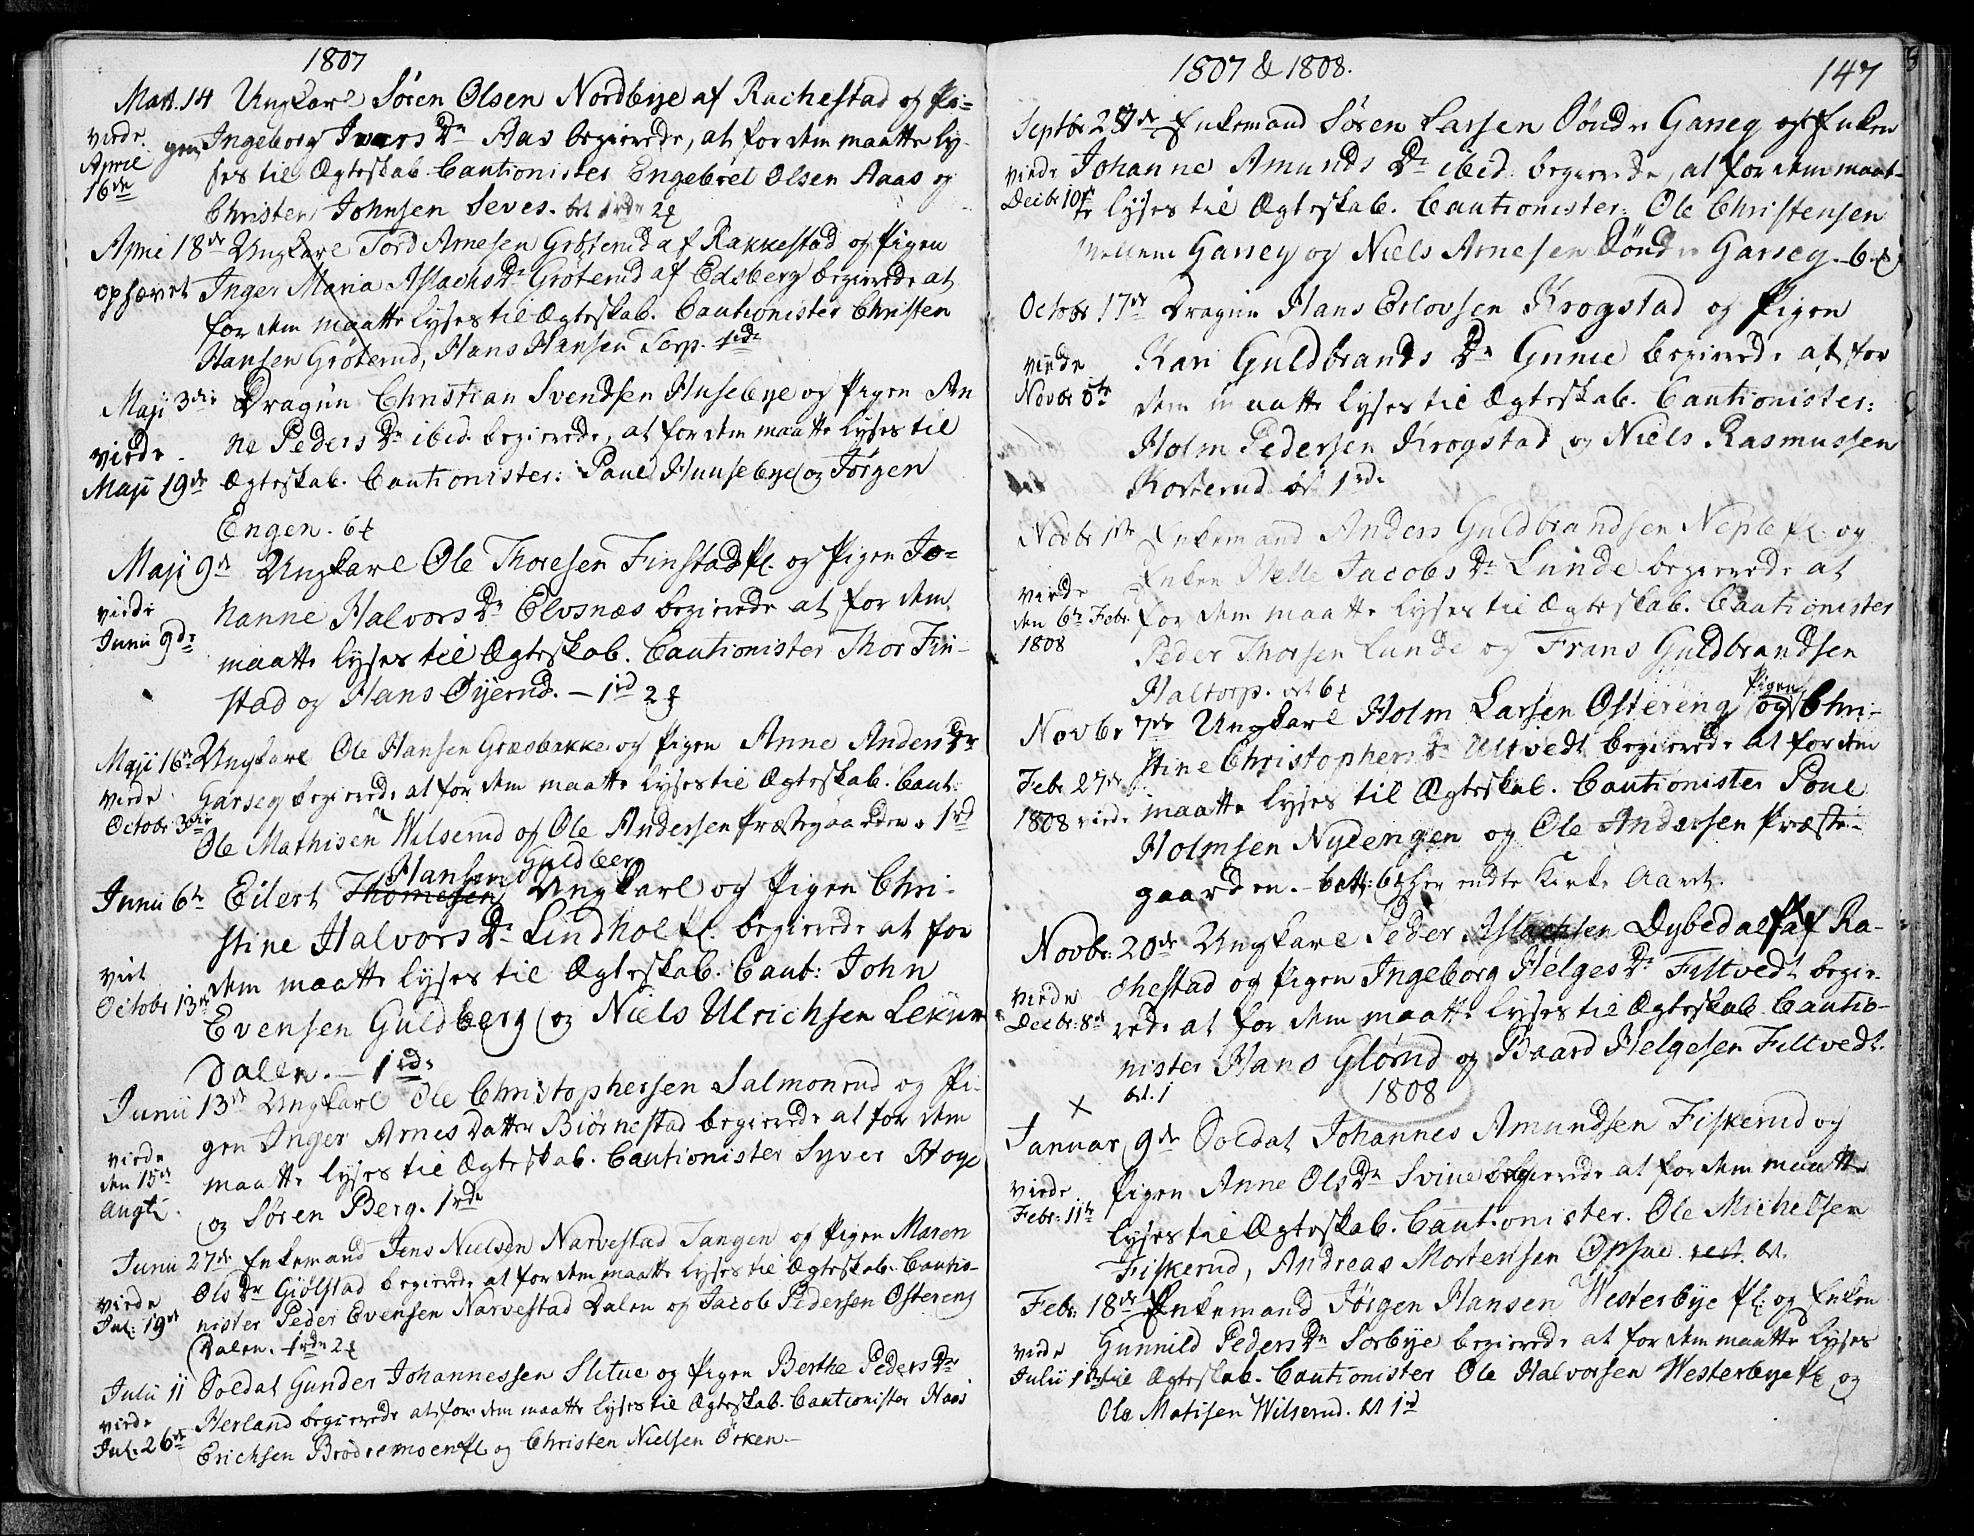 1807
Mart. 14 Ungkarl Søren Olsen Nordbye af Rachestad og Pi=
virde gen Ingeborg Ivers Dr Aas begierede, at for dem maatte ly-
April ses til Ægteskab Cautionister Engebret Olsen Aaas og
16de Christen Johnsen Seves. bet 1rdr 2
April 18de Ungkarl Tord Arnesen Grøterud af Rakkestad og Pigen
ophævet Inger Maria Aslachs Dr Grøterud af Edsberg begierede at
for dem maatte lyses til Ægteskab. Cautionister Christen
Hansen Grøterud, Hans Hansen Torp. 1rdr
Maji 3die Dragun Christian Svendsen Husebye og Pigen An
virde ne Peders Dr ibid. begierede, at for dem maatte lyses til
Maji 19de Ægteskab. Cautionister: Poul Huusebye og Jørgen
Engen. 6
Maji 9de Ungkarl Ole Thoresen Finstad pl. og Pigen Jo=
virde hanne Halvors Dr Elvsnæs begierede at for dem
Junii 9de maatte lyses til Ægteskab. Cautionister Thor Fin-
stad og Hans Øyerud. - 1rd 2
Maji 16de Ungkarl Ole Hansen Græsbakke og Pigen Anne Anders Dr
virde Garseg begierede at for dem maatte lyses til Ægteskab. Caut:
Octobr 3die Ole Mathisen Wilserud og Ole Andersen Præstegaarden. 1rd
Hansen Guldberg
Junii 6te Eilert Thomesen Ungkarl og Pigen Chri-
stine Halvors Dr Lindhol pl. begierede at for
viet dem maatte lyses til Ægteskab. Caut: John
Octobr 13de Evensen Guldberg og Niels Ulrichsen Lekum
Dalen. - 1rdr
Junii 13de Ungkarl Ole Christophersen Salmonrud og Pi-
gen Inger Arnes Datter Biørnestad begierede at for dem
virde maatte lyses til Ægteskab. Cautionister Syver Hoge
den 15de og Søren Berg. 1rdr
Augti.
Junii 27de Enkemand Jens Nielsen Narvestad Tangen og Pigen Maren
Ols Dr Giølstad begierede at for dem maatte lyses til Ægteskab. Cautio-
virde nister Peder Evensen Narvestad Dalen og Jacob Pedersen Østereng
Jul: 19de Dalen. 1rdr 2
Julii 11 Soldat Gunder Johannessen Slitue og Pigen Berthe Peders Dr
virde Herland begierede at for dem maatte lyses til Ægteskab. Cautionister Hans
Jul: 26de Erichsen Brødremoen pl. og Christen Nielsen Ørken.-
1807 & 1808. 147
Septbr 28de Enkemand Søren Larsen Søndr Garseg og Enken
virde Johanne Amunds Dr ibid: begierede, at for dem maat-
Decbr 10de te lyses til Ægteskab. Cautionister: Ole Christensen
Mellem Garseg og Niels Arnesen Søndr Garseg. 6
Octobr 17de Dragun Hans Erlovsen Krogstad og Pigen
virde Kari Guldbrands Dr Gunie begierede at for
Novbr 8de dem maatte lyses til Ægteskab. Cautionister:
Holm Pedersen Krogstad og Niels Rasmussen
Kosterud. 1rdr
Novbr 1ste Enkemand Anders Guldbrandsen Neple pl: og
Enken Helle Jacobs Dr Lunde begierede at
virde for dem maatte lyses til Ægteskab. Cautionister
den 6te Febr. Peder Thorsen Lunde og Frans Guldbrandsen
1808 Haltorp. bet 6
Novbr 7de Ungkarl Holm Larsen Østereng og Pigen Chri-
stine Christophers Dr Ultvedt begierede at for dem
Febr. 27de maatte lyses til Ægteskab. Cautionister Poul
1808 virde Holmsen Nylengen og Ole Andersen Præste-
gaarden. - bett: 6 Her endte Kirke Aaret.
Novbr: 20de Ungkarl Peder Aslachsen Dybedal pl af Ra-
chestad og Pigen Ingeborg Helges Dr Filtvedt begie-
virde rede at for dem maatte lyses til Ægteskab Cautio-
Decbr: 8de nister Hans Glørud og Baard Helgesen Filtvedt.
bet. 1
1808
Januar 9de Soldat Johannes Amundsen Fiskerud og
virde Pigen Anne Ols Dr Svine begierede at for dem maatte
Febr: 11te lyses til Ægteskab. Cautionister. Ole Michelsen
Fiskerud, Andreas Mortensen Opsue. rest. bt.
Febr: 18de Enkemand Jørgen Hansen Westerbye pl: og Enken
virde Gunnild Peders Dr Sorbye begierede at for dem maatte lyses
Julii til Ægteskab. Cautionister Ole Halvorsen Westerbye pl og
Ole Matisen Wilserud. bt 1rd